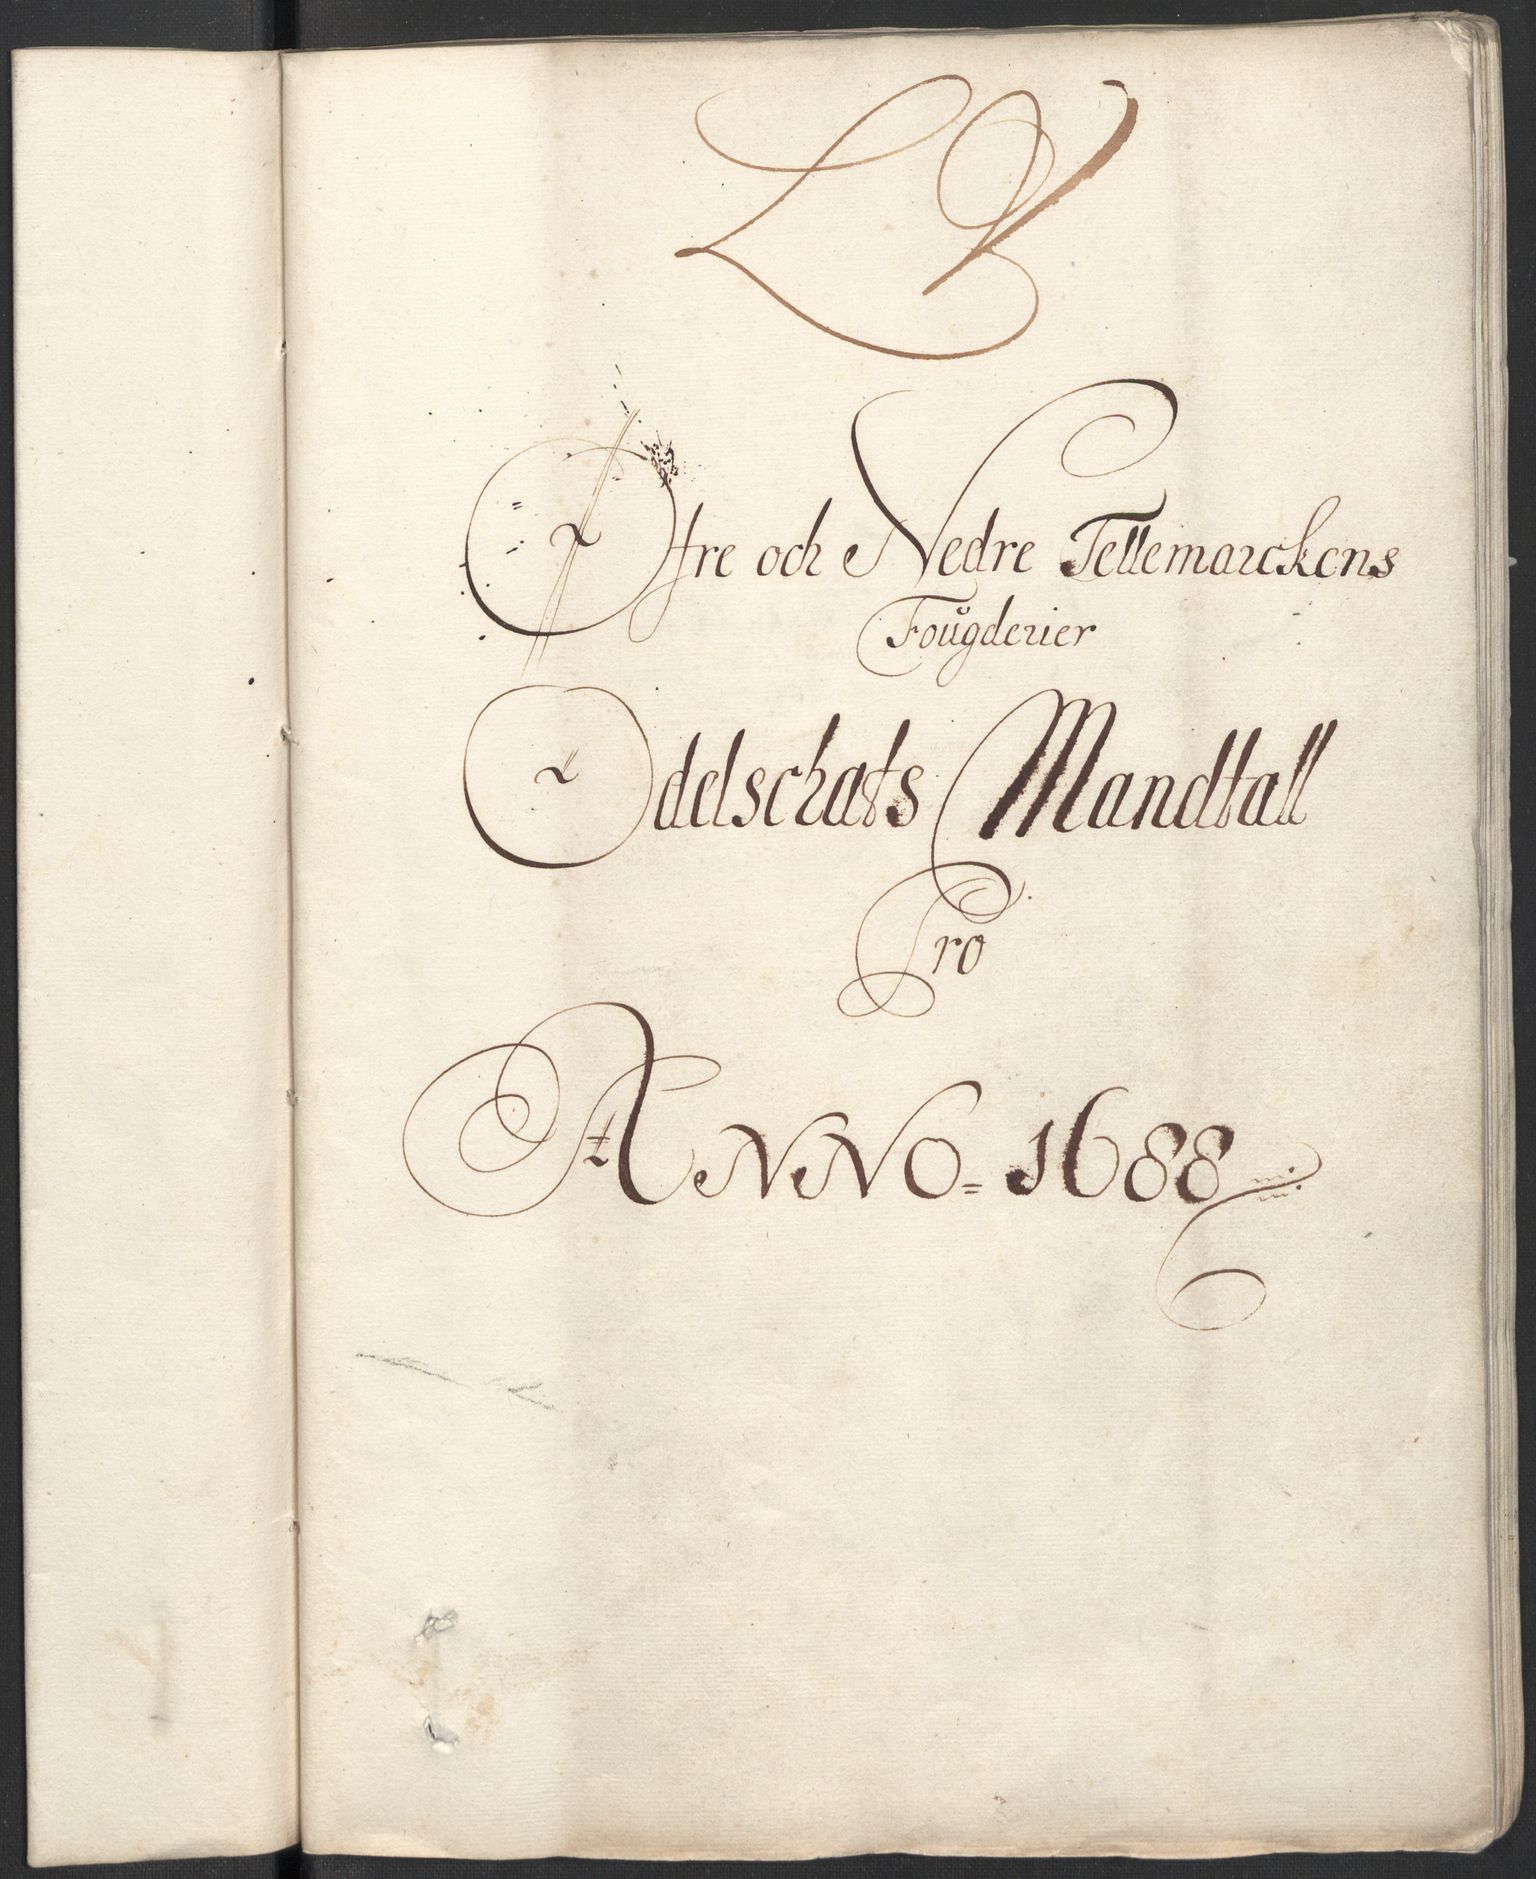 LB
Øfre och Nedre Tellemarckens
Foŭgderier
Odelschats Mandtall
Pro
ANNO = 1688